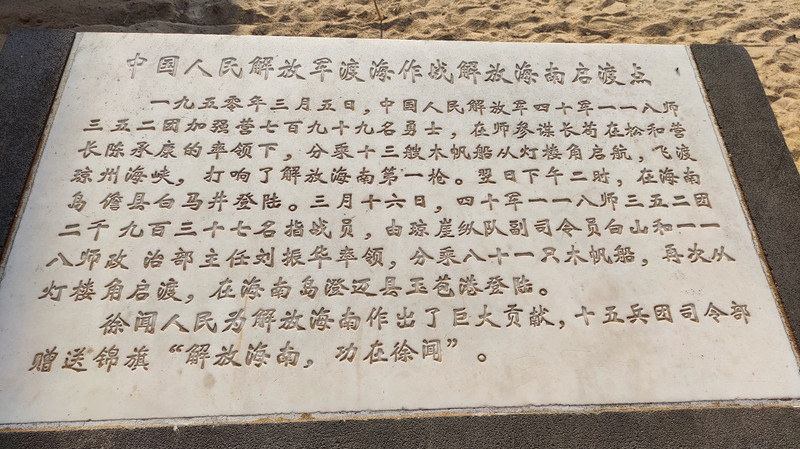 中国人民解放军渡海作战解放海南启渡点
一九五零年三月五日，中国人民解放军四十军一一八师
三五二团加强营七百九十九名勇士，在师参谋长苟在松和营
长陈承康的率领下，分乘十三艘木帆船从灯楼角启航，飞渡
琼州海峡，打响了解放海南第一枪。翌日下午二时，在海南
岛 儋县白马井登陆。三月十六日，四十军一一八师三五二团
二千 九百三十七名指战员，由琼崖纵队副司令员白山和一一
八师政 治部主任刘振华率领，分乘八十一只木帆船，再次从
灯楼角启渡，在海南岛澄迈县玉苞港登陆。
徐闻人民为解放海南作出了巨大贡献，十五兵团司令部
赠送锦旗“解放海南，功在徐闻”。